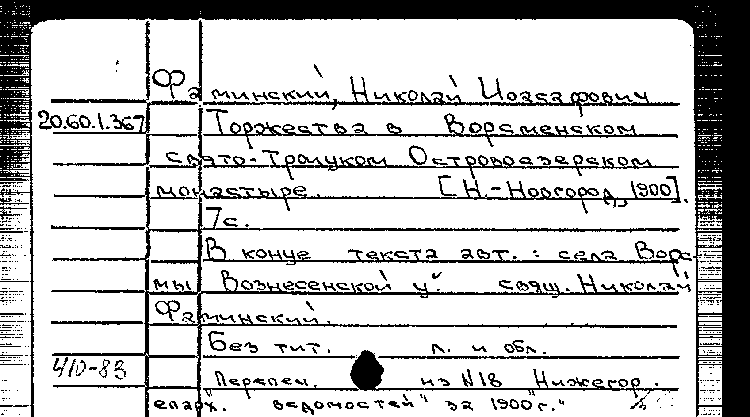 Фаминский, Николай Иоасафович
20.60.1.367 Торжества в Ворсменском
свято-Троицком Островоезерском
монастыре. [Н.-Новгород, 1900].
7с.
В конце текста авт.: села Ворс-
мы Вознесенской ц. свящ. Николай
Фаминский.
Без тит. л. и обл.
410-83
"Перепеч. из N18 "Нижегор.
епарх. ведомостей" за 1900г."